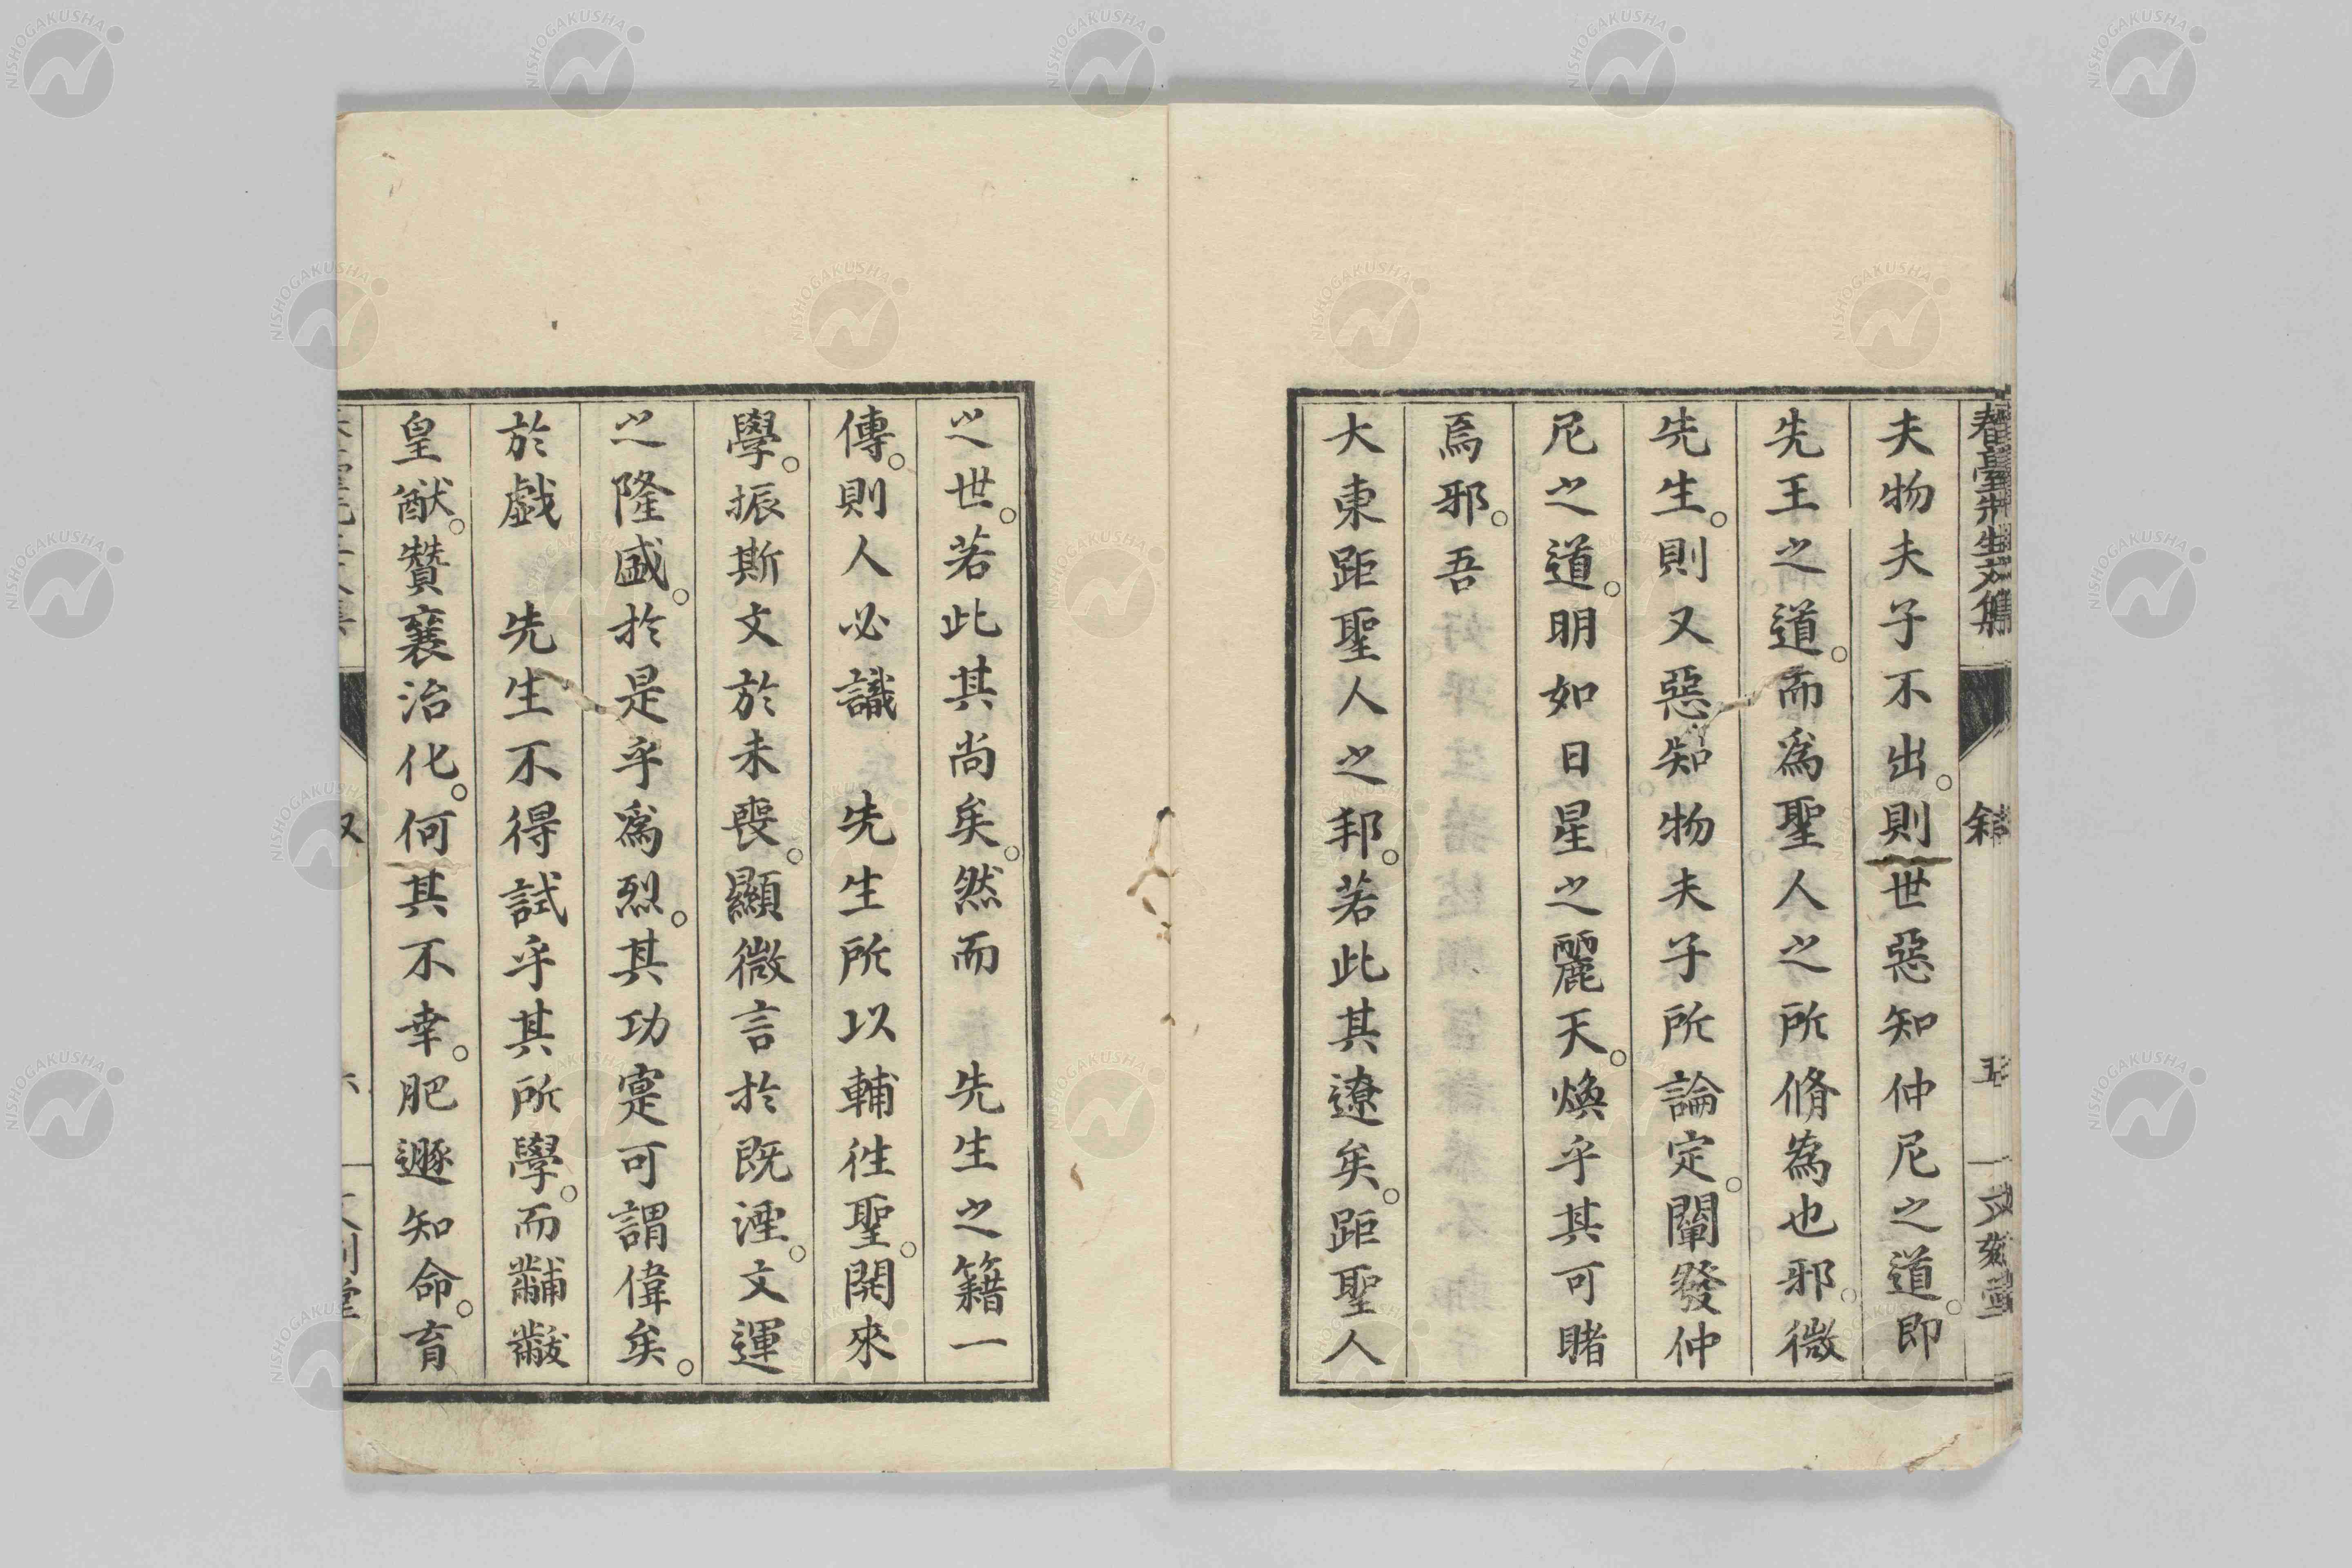 夫物夫子不出。則世惡知仲尼之道。即
先王之道。而爲聖人之所脩為也邪。微
先生。則又惡知物夫子所論定。闡發仲
尼之道。明如日星之麗天。煥乎其可睹
焉邪。吾
大東距聖人之邦。若此其遼矣。距聖人
之世。若此其尚矣。然而　先生之籍一
傳。則人必識　先生所以輔徃聖。開來
學。振斯文於未喪。顯微言於既湮。文運
之隆盛。於是乎爲烈。其功寔可謂偉矣。
於戲　先生不得試乎其所學。而黼黻
皇猷。贊襄治化。何其不幸。肥遯知命。育
春臺先生文集
叙
五
文刻堂
NISHOGAKUSHA